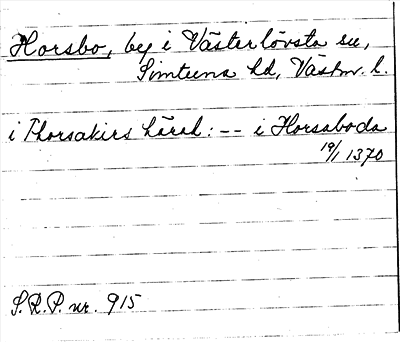 Horsbo, by i Västerlövsta sn,
Simtuna hd, Västm. l.
i Thorsakirs häradh: -- i Horsaboda
19/1 1370
S.R.P. nr. 915